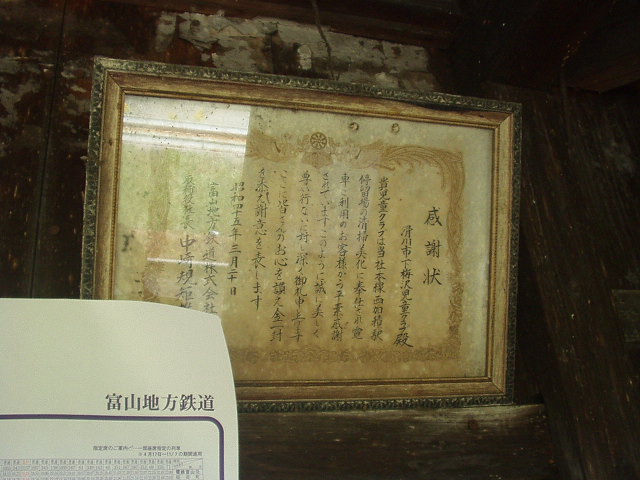 感謝状
滑川市下梅沢児童クラブ殿
貴児童クラブは当社本線西加積駅
停留場の清掃美化に奉仕され電
車ご利用のお客様から平素感謝
されています このように誠に美しく
尊い行ないに対し深く御礼申上げます
ここに皆さんのお心を讃え金一封
を添え謝意を表します
昭和四十五年三月二十日
富山地方鉄道株式会社
取締役社長
富山地方鉄道
指定席のご案内
の期間適用